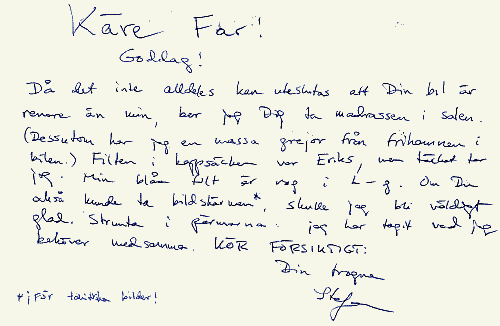 Käre Far!
Goddag!
Då det inte alldeles kan uteslutas att Din bil är
renare än min, ber jag Dig ta madrassen i salen.
(Dessutom har jag en massa grejor från frihamnen i
bilen.) Filten i kappsäcken var Eriks, men täcket tar
jag. Min blåa filt är nog i L-g. Om Din
också kunde ta bildskärmen*, skulle jag bli väldigt
glad. Strunta i pärmarna: jag har tagit vad jag
behöver medsamma. KÖR FÖRSIKTIGT:
Din trogne
Stefan
*) För taktiska bilder!